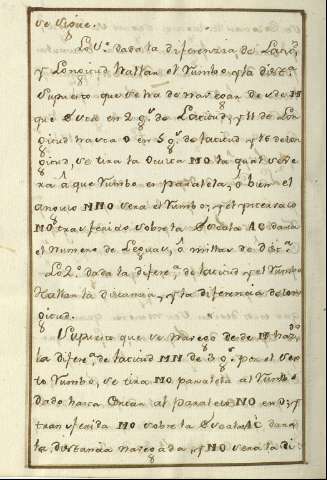 se sigue.
Lo 1.º dada la diferencia, de Latitd,
y Longitud hallar el Rumbo, y la dist.ª
Supuesto que se ha de navegar desde M
que este en 2 g.s de Latitud, y 11 de Lon
gitud hasta O en 5 g.s de latitud y 16 de lon
gitud, se tira la Oculta MO la qual se ve
ra â que Rumbo es paralela, o bien el
angulo NMO sera el Rumbo; y el intervalo
MO transferido sobre la Escala AC dara
el numero de leguas, ô millas de dist.ª
Lo 2.º dada la difere.ª de latitud y el Rumbo
Hallar la distancia, y la diferencia de lon
gitud.
Supuesto que se navegò desde M hazia
la difere.ª de latitud MN de 3 g.s por el
Rumbo, se tira MO paralela al Rumbo
dado hasta Cortar al paralelo NO en O; y
transferida MO sobre la Escala AC dara
la distancia navegada, y NO sera la di